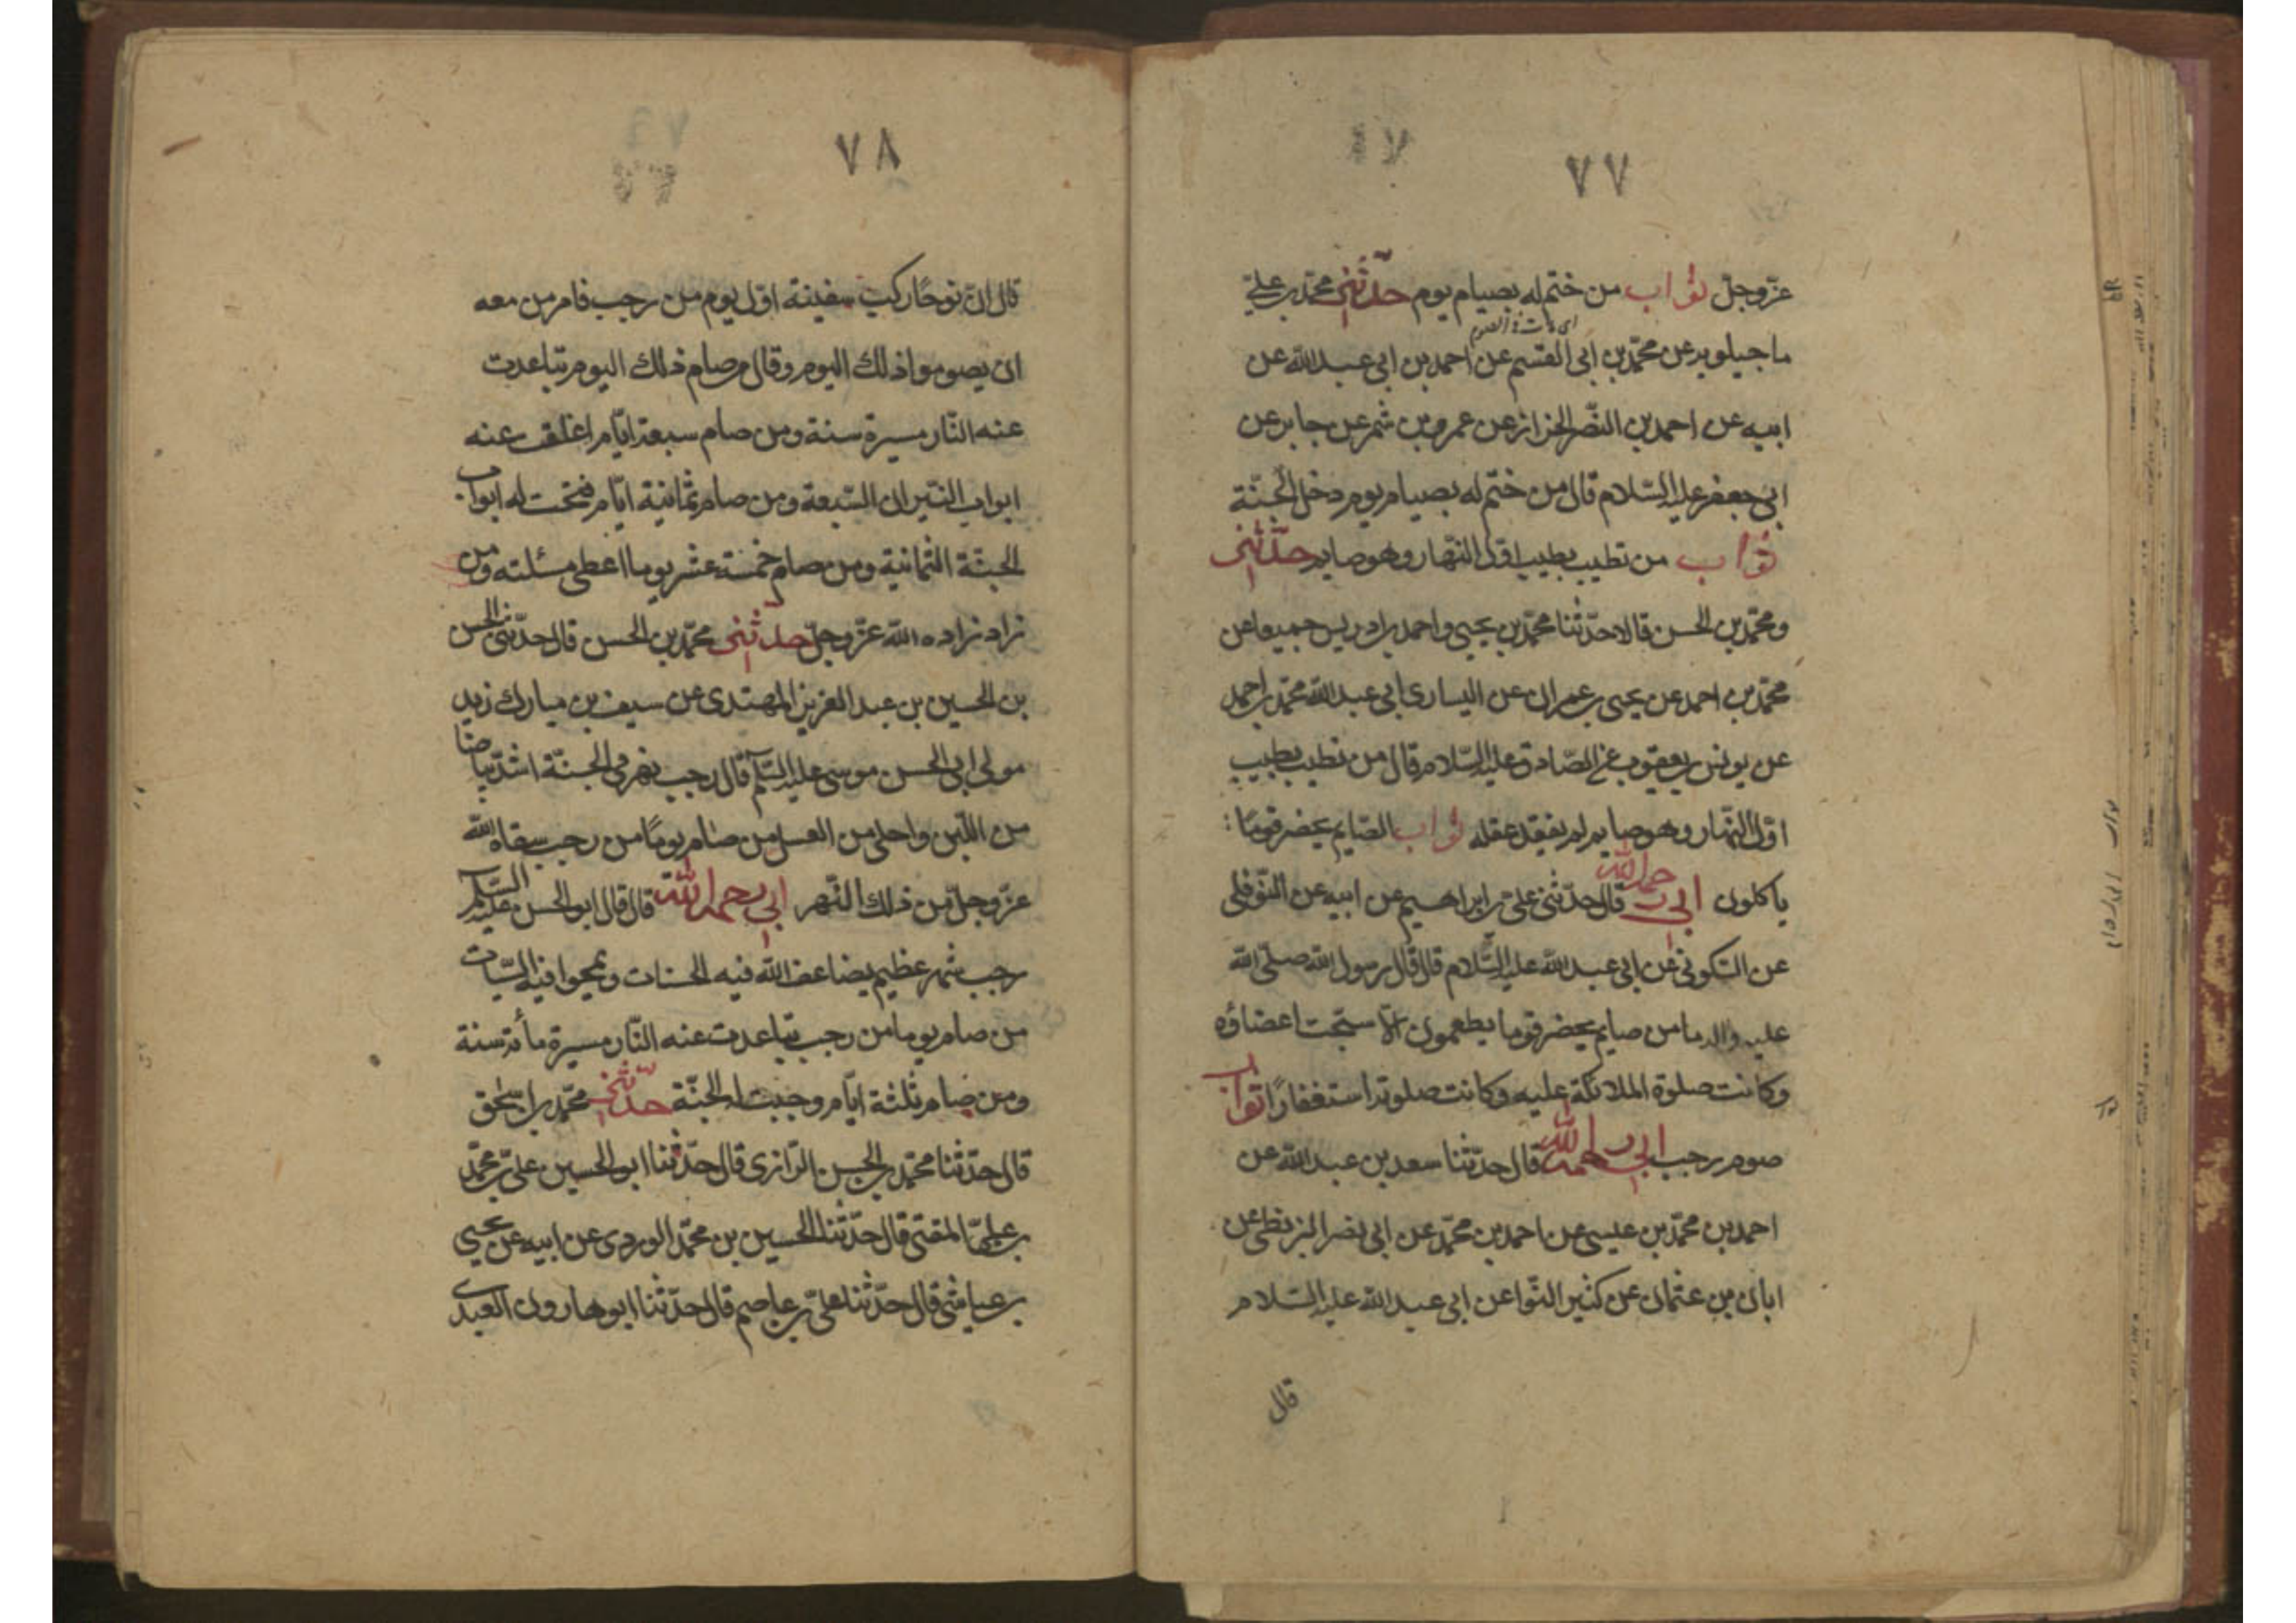 ٧٧
عزّوجلّ ثواب من ختم له بصيام يوم حدّثنى محمّد بن علىّ
اى مات فى الصوم
ماجيلويه عن محمّد بن ابى القسم عن احمد بن ابى عبد الله عن
ابيه عن احمد بن النّضر الخزاز عن عمرو بن شمر عن جابر عن
ابى جعفر عليه السّلام قال من ختم له بصيام يوم دخل الجنّة
ثواب من تطيب بطيب اوّل النّهار وهو صايم حدّثنى
ومحمّد بن الحسن قالا حدّثنا محمّد بن يحيى واحمد بن ادريس جميعا عن
محمّد بن احمد عن يحيى بن عمران عن اليسارى ابى عبد الله محمّد بن احمد
عن يونس بن يعقوب عن الصّادق عليه السّلام قال من تطيب بطيب
اوّل النّهار وهو صايم لم يفقد عقله ثواب الصّايم يحضر قومًا
ياكلون ابى رحمه الله قال حدّثنى علىّ بن ابراهيم عن ابيه عن النّوفلى
عن السّكونى عن ابى عبد الله عليه السّلام قال قال رسول الله صلّى الله
عليه واله ما من صايم يحضر قوما يطعمون الّا سبّحت اعضاؤه
وكانت صلوة الملائكة عليه وكانت صلوتهم استغفارًا ثواب
صوم رجب ابى رحمه الله قال حدّثنا سعد بن عبد الله عن
احمد بن محمّد بن عيسى عن احمد بن محمّد عن ابى نصر البزنطى عن
ابان بن عثمان عن كثير النّوا عن ابى عبد الله عليه السّلام
قال
٧٨
قال انّ نوحًا ركب سفينة اوّل يوم من رجب فامر من معه
ان يصوموا ذلك اليوم وقال من صام ذلك اليوم تباعدت
عنه النّار مسيرة سنة ومن صام سبعة ايّام اغلقت عنه
ابواب النّيران السّبعة ومن صام ثمانية ايّام فتحت له ابواب
الجنّة الثّمانية ومن صام خمسة عشر يوما اعطى مسئلته ومن
زاد زاده الله عزّوجلّ حدّثنى محمّد بن الحسن قال حدّثنى الحسن
بن الحسين بن عبد العزيز المهتدى عن سيف بن مبارك زيد
مولى ابى الحسن موسى عليه السّلم قال رجب نهر فى الجنّة اشدّ بياضا
من اللّبن واحلى من العسل من صام يومًا من رجب سقاه الله
عزّوجلّ من ذلك النّهر ابى رحمه الله قال قال ابو الحسن عليه السّلم
رجب شهر عظيم يضاعف الله فيه الحسنات ويمحوا فيه السّيّات
من صام يوما من رجب تباعدت عنه النّار مسيرة مأة سنة
ومن صام ثلثة ايّام وجبت له الجنّة حدّثنى محمّد بن اسحق
قال حدّثنا محمّد بن الحسن الرّازى قال حدّثنا ابو الحسين علىّ بن محمّد
بن علىّ المفتى قال حدّثنا الحسين بن محمّد المروردى عن ابيه عن يحيى
بن عياش قال حدّثنا علىّ بن عاصم قال حدّثنا ابو هارون العبدى